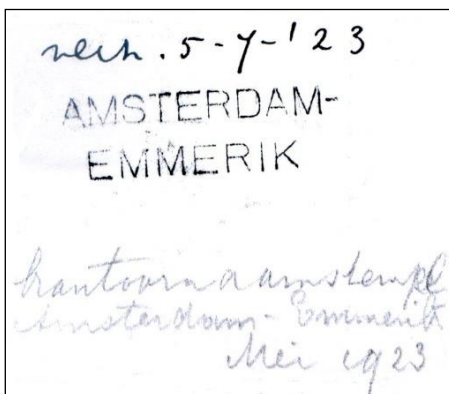 verh. 5-7-'23
AMSTERDAM-
EMMERIK
kantoornaamstempel
Amsterdam-Emmerik
Mei 1923